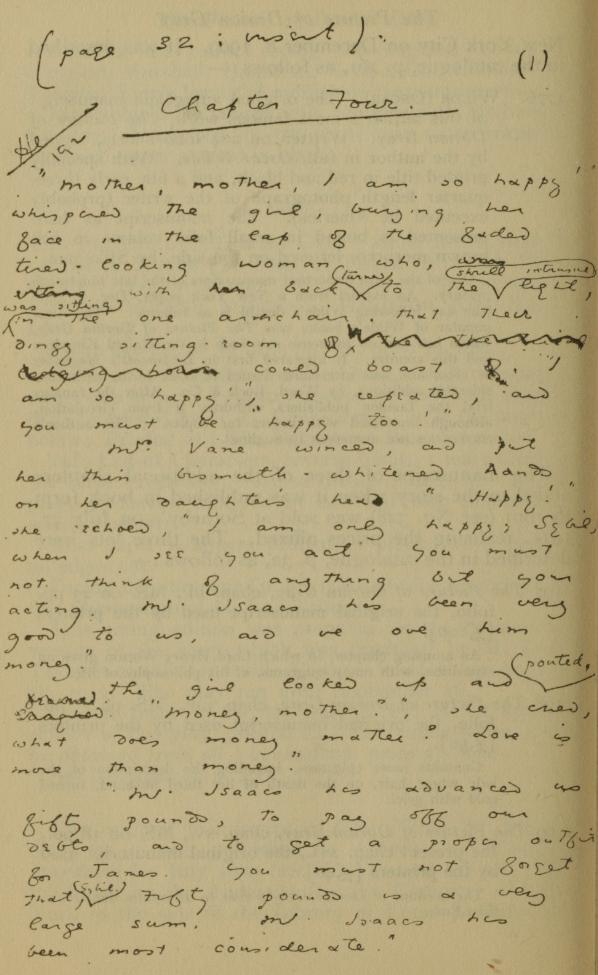 (page 32 : insert).
(1)
Chapter Four.
192
"Mother, mother, I am so happy!"
whispered the girl, burying her
face in the lap of the faded
tired-looking woman who, was
sitting with her back turned to the shrill intrusive light,
was sitting in the one armchair that their
dingy sitting-room
could boast of. "I
am so happy!", she repeated, "and
you must be happy too!"
Mrs. Vane winced, and put
her thin bismuth-whitened hands
on her daughter's head "Happy!"
she echoed, "I am only happy, Sybil,
when I see you act you must
not think of anything but your
acting. Mr. Isaacs has been very
good to us, and we owe him
money."
The girl looked up and pouted.
"Money, mother?", she cried,
what does money matter? Love is
more than money."
"Mr. Isaacs has advanced us
fifty pounds, to pay off our
debts, and to get a proper outfit
for James. You must not forget
that, Sybil, Fifty pounds is a very
large sum. Mr. Isaacs has
been most considerate."